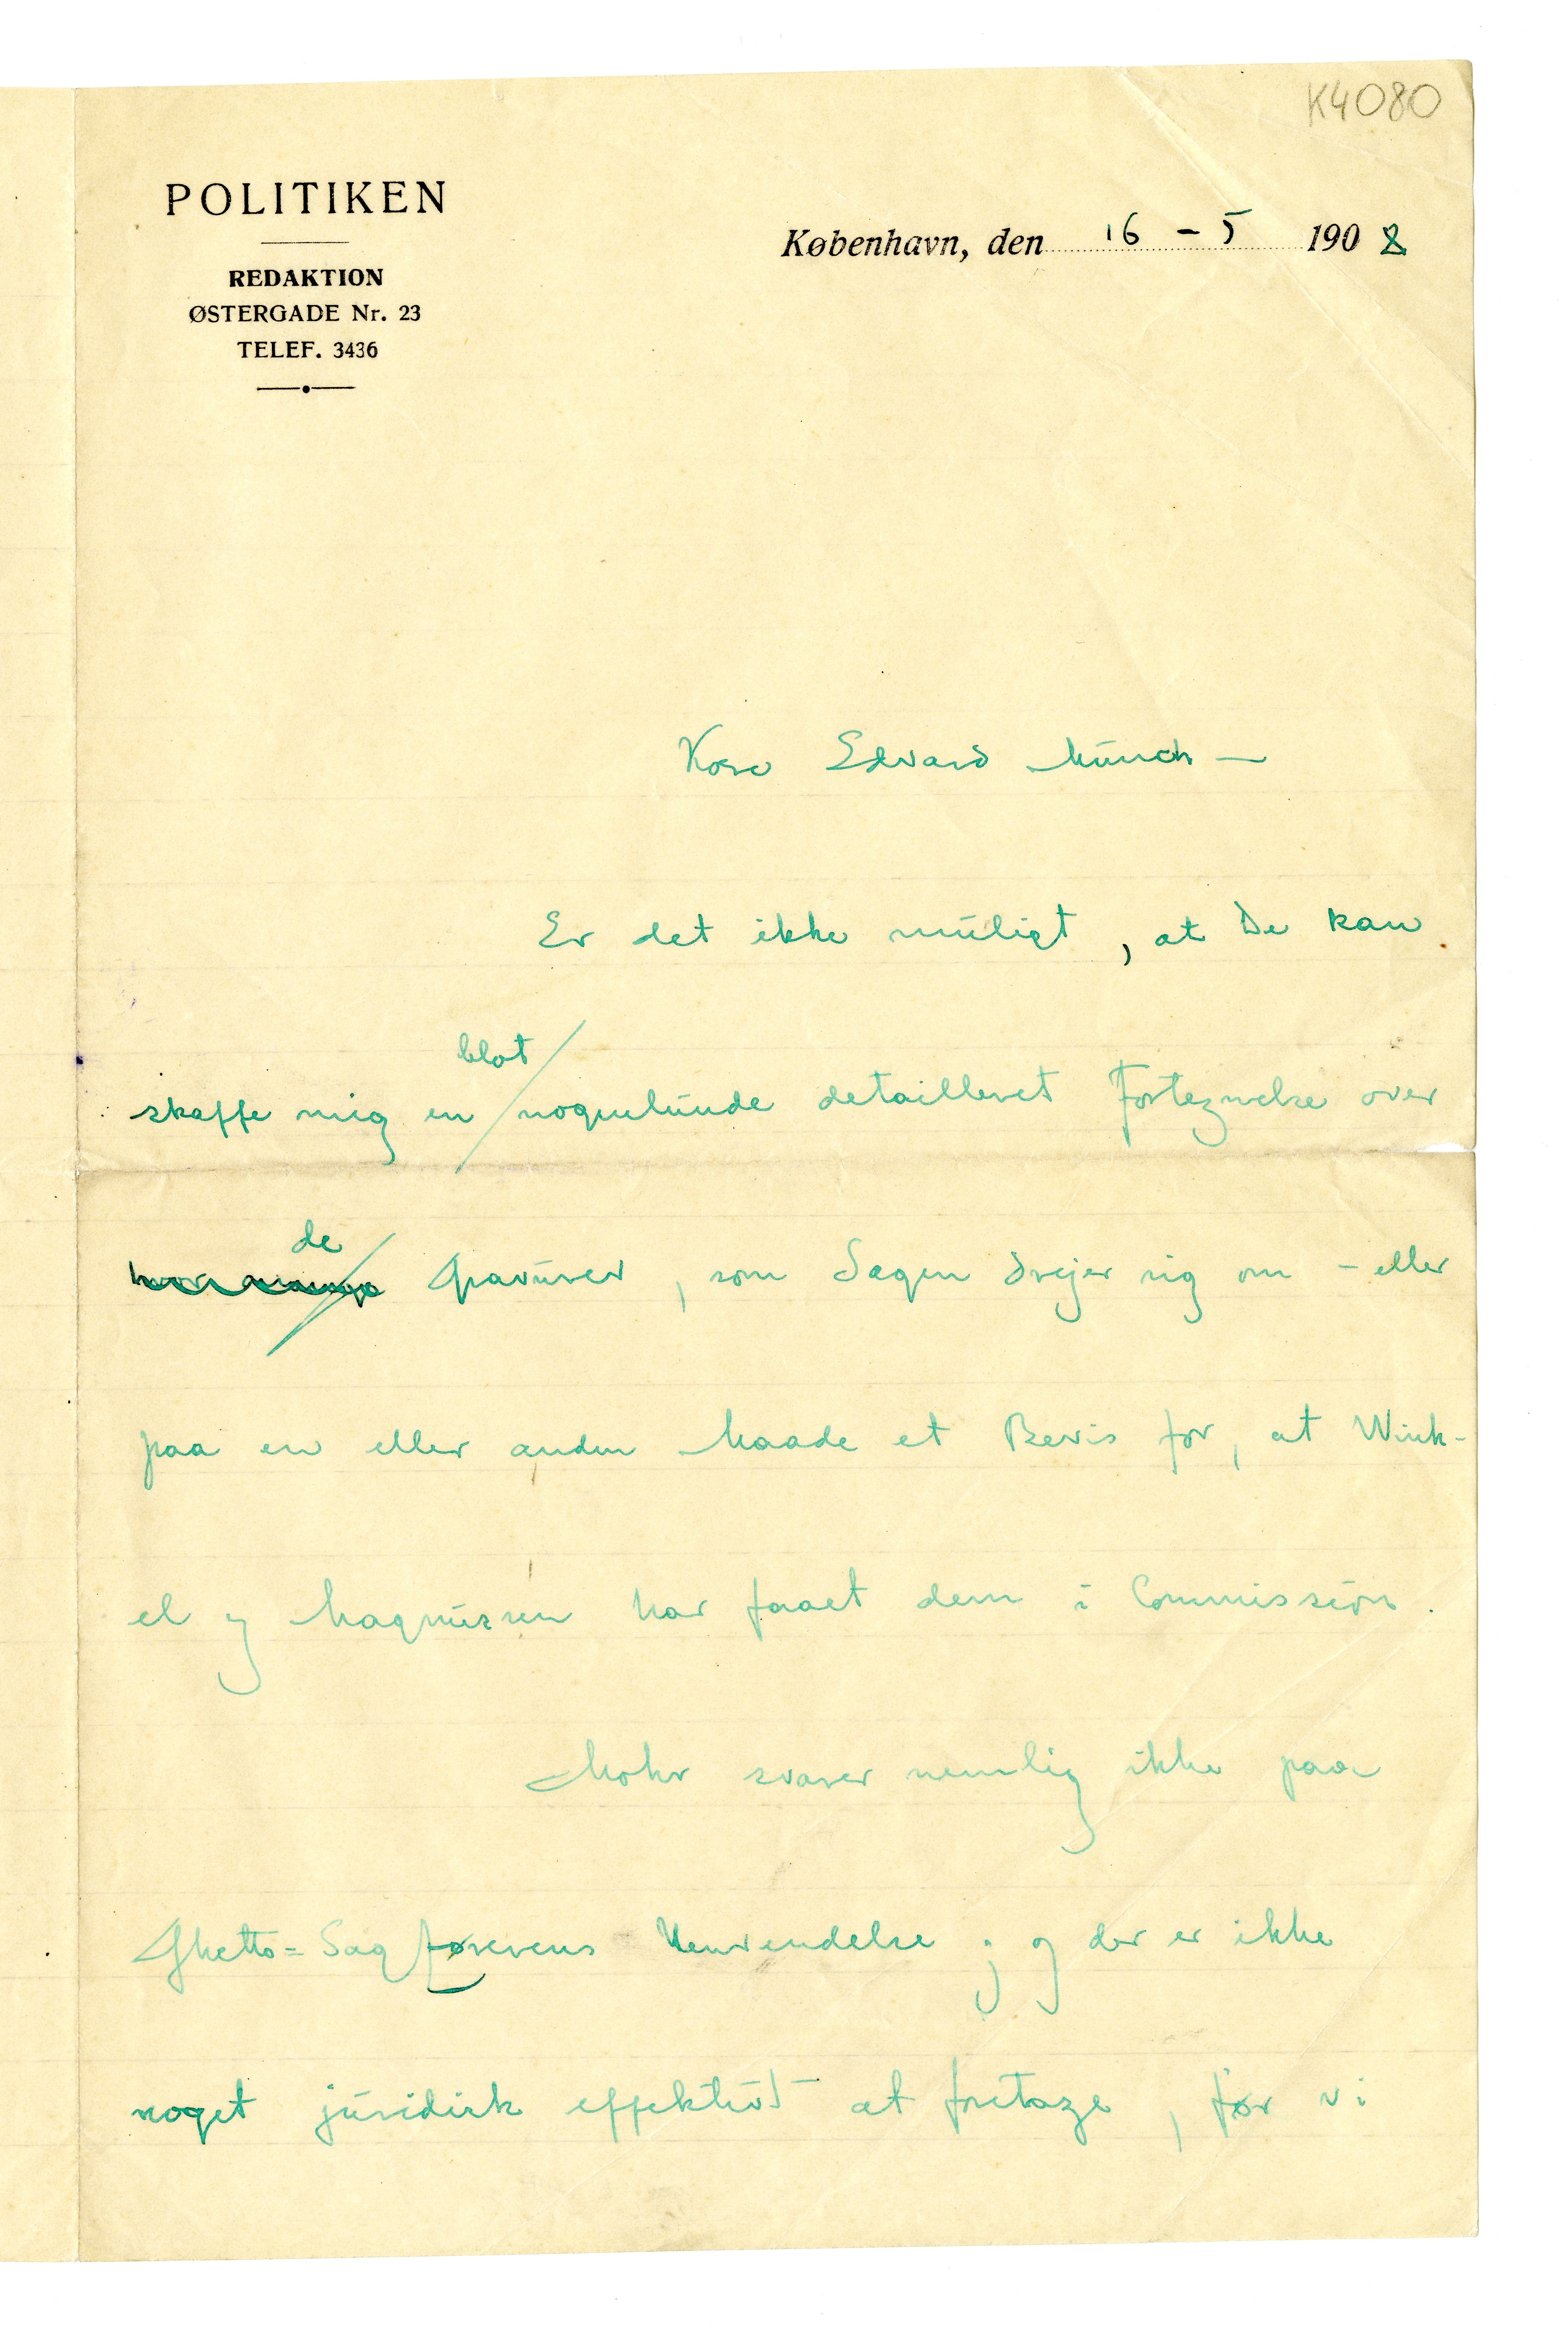 K4080
POLITIKEN
REDAKTION
ØSTERGADE Nr. 23
TELEF. 3436
København, den 16 - 5 1908
Kære Edvard Munch —
Er det ikke muligt, at De kan
skaffe mig en blot nogenlunde detailleret Fortegnelse over
de Gravurer, som Sagen drejer sig om - eller
paa en eller anden Maade et Bevis for, at Wink-
el og Magnussen har faaet dem i Commission.
Mohr svarer nemlig ikke paa
Ghetto=Sagførerens Henvendelse; og der er ikke
noget juridisk effektivt at foretage, før vi